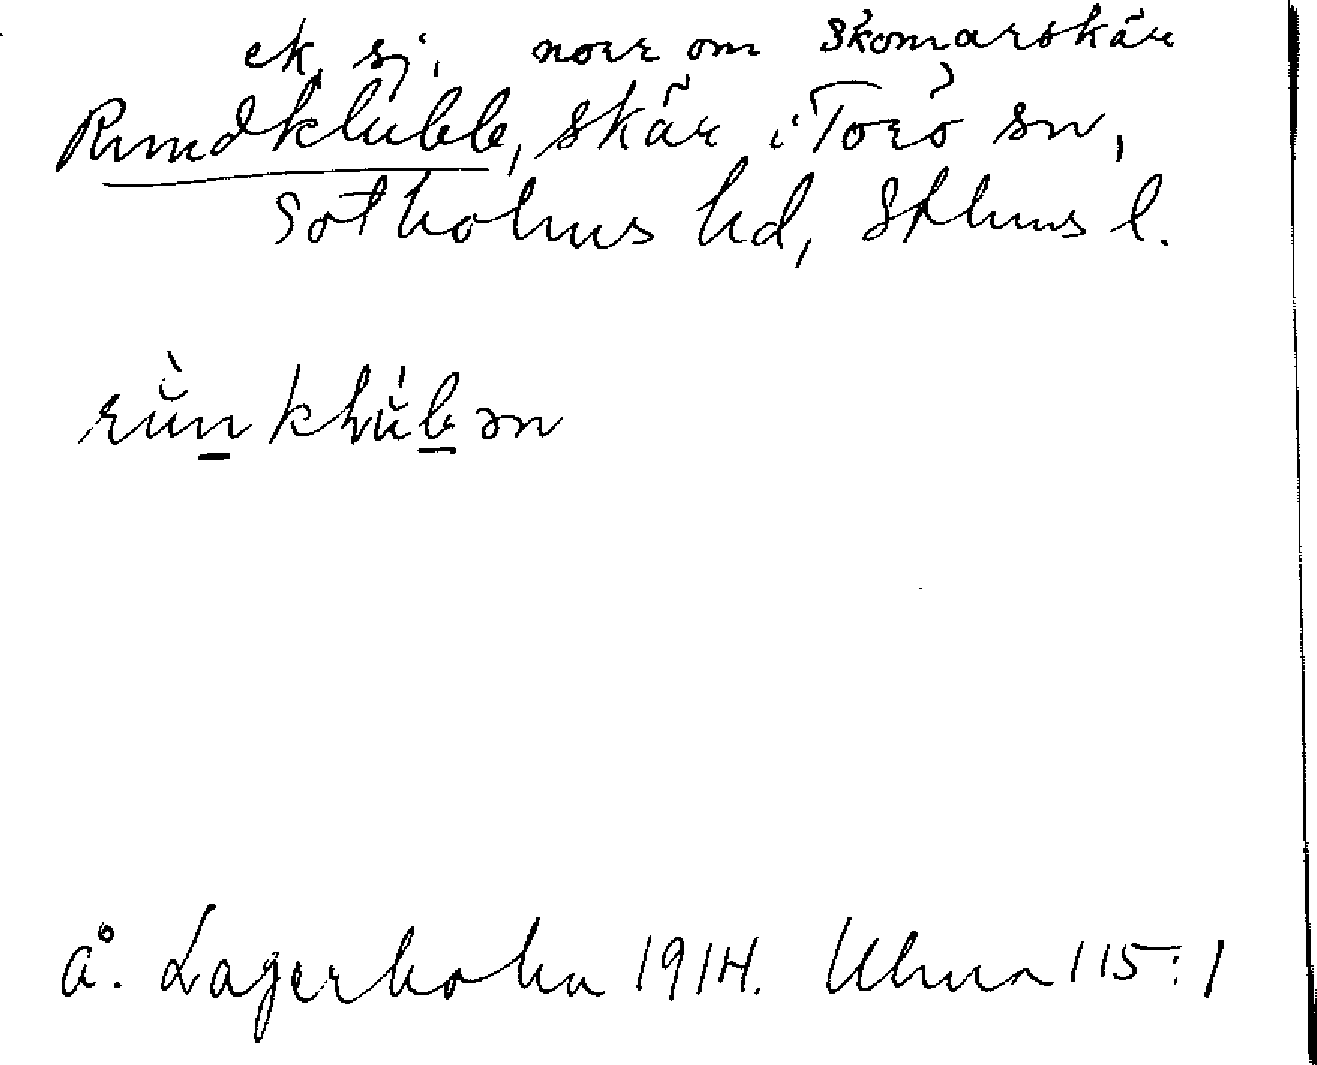 ek. sj. norr om Skomarskär
Rundklubb, skär i Torö sn,
Sotholms hd, Sthlms l.
rùn klùban
Å. Lagerholm 1914. Uhna 115:1